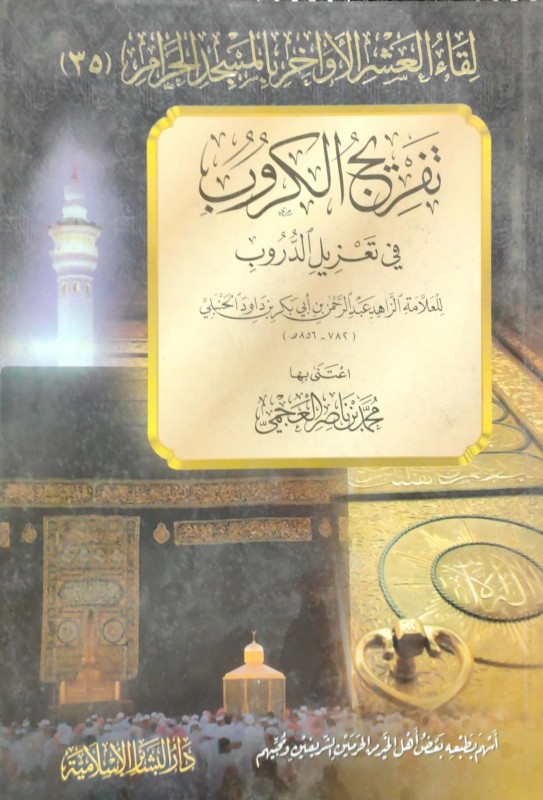 لِقَاءُ العَشْرِ الأَوَاخِرِ بِالمَسْجِدِ الحَرَامِ (٣٥)
تَفْرِيجُ الكُرُوبِ
فِي تَعْزِيلِ الدُّرُوبِ
لِلعَلَّامَةِ الزَّاهِدِ عَبْدِ الرَّحْمٰنِ بْنِ أَبِي بَكْرِ بْنِ دَاوُدَ الحَنْبَلِيِّ
(٧٨٢ - ٨٥٦هـ)
اعْتَنَى بِهَا
مُحَمَّد بْن نَاصِر العَجْمِي
أَسْهَمَ بِطَبْعِهِ بَعْضُ أَهْلِ الخَيْرِ مِنَ الحَرَمَيْنِ الشَّرِيفَيْنِ وَمُحِبِّيهِم
دَارُ البَشَائِرِ الإِسْلَامِيَّة